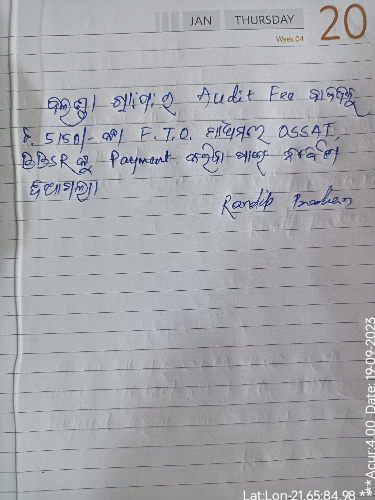 JAN THURSDAY 20
Week 04
ଗ୍ରା.ପଂ.ର Audit Fee ବାବଦକୁ
ଟ. 5150/- କା F.T.O. ମାଧ୍ୟମରେ OSSAT,
BBSR କୁ Payment କରିବା ପାଇଁ
ଦିଆଗଲା।
Randip Pradhan
***Acur:4.00 Date:19-09-2023
Lat:Lon-21.65:84.98